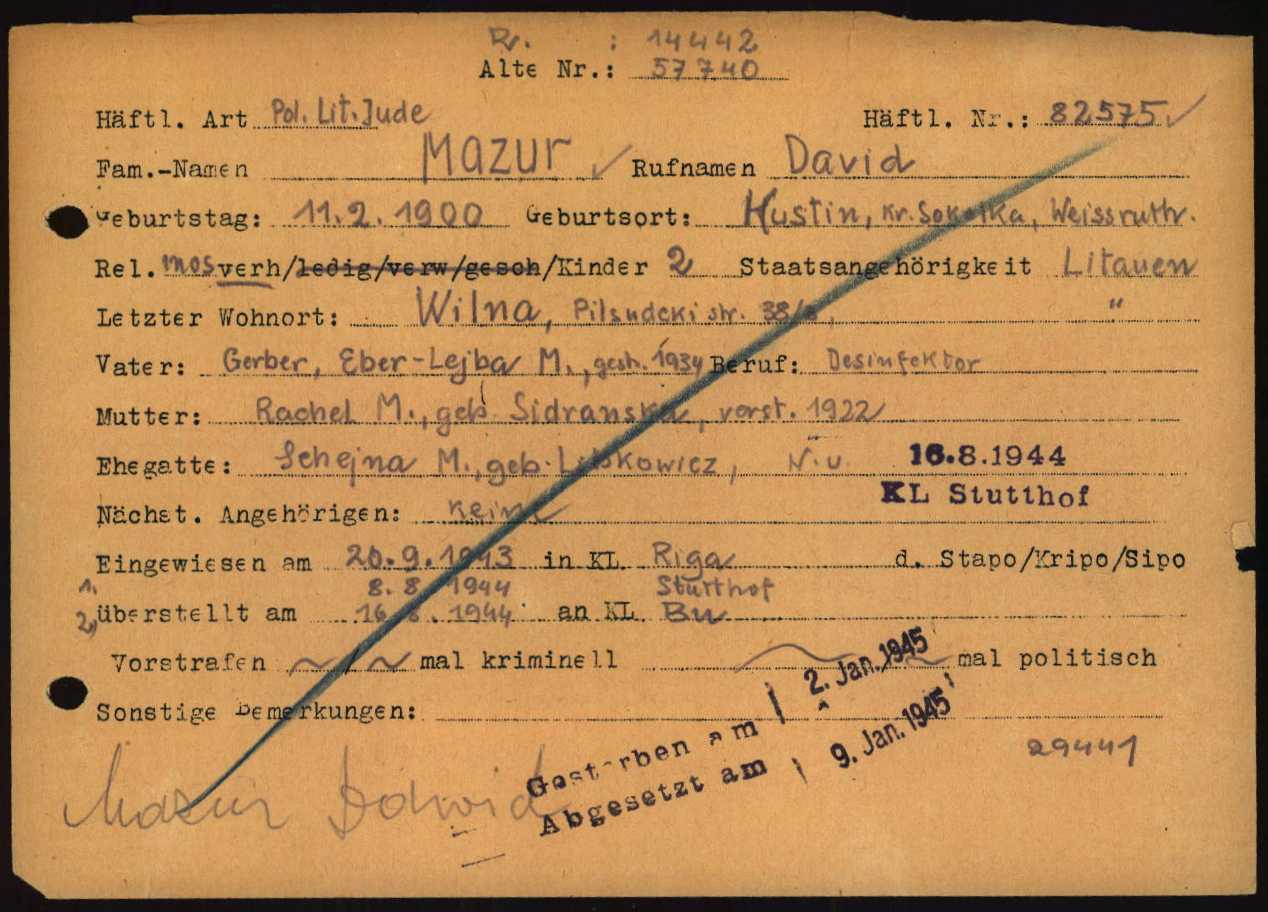 : 14442
Alte Nr.: 57740
Häftl. Art Pol. Lit. Jude Häftl. Nr.: 82575
Fam.-Namen Mazur Rufnamen David
Geburtstag: 11.2.1900 Geburtsort: Hustin, Kr. Sokolka, Weissruth.
Rel. mos verh/ledig/verw/gesch/Kinder 2 Staatsangehörigkeit Litauen
Letzter Wohnort: Wilna, Pilsudcki str. 38/ "
Vater: Gerber, Eber-Lejba M., gesh. 1934 Beruf: Desinfektor
Mutter: Rachel M., geb. Sidranska, vorst. 1922
Ehegatte: Schejna M., geb. Libkowicz, N.u. 16.8.1944
KL Stutthof
Nächst. Angehörigen: Keine
Eingewiesen am 20.9.1943 in KL Riga d. Stapo/Kripo/Sipo
1. 8.8.1944 Stutthof
2, überstellt am 16.8.1944 an KL Bu
Vorstrafen mal kriminell mal politisch
Sonstige Bemerkungen:
Gestorben am 2. Jan. 1945
Abgesetzt am 9. Jan. 1945
29441
Mazur Dawid